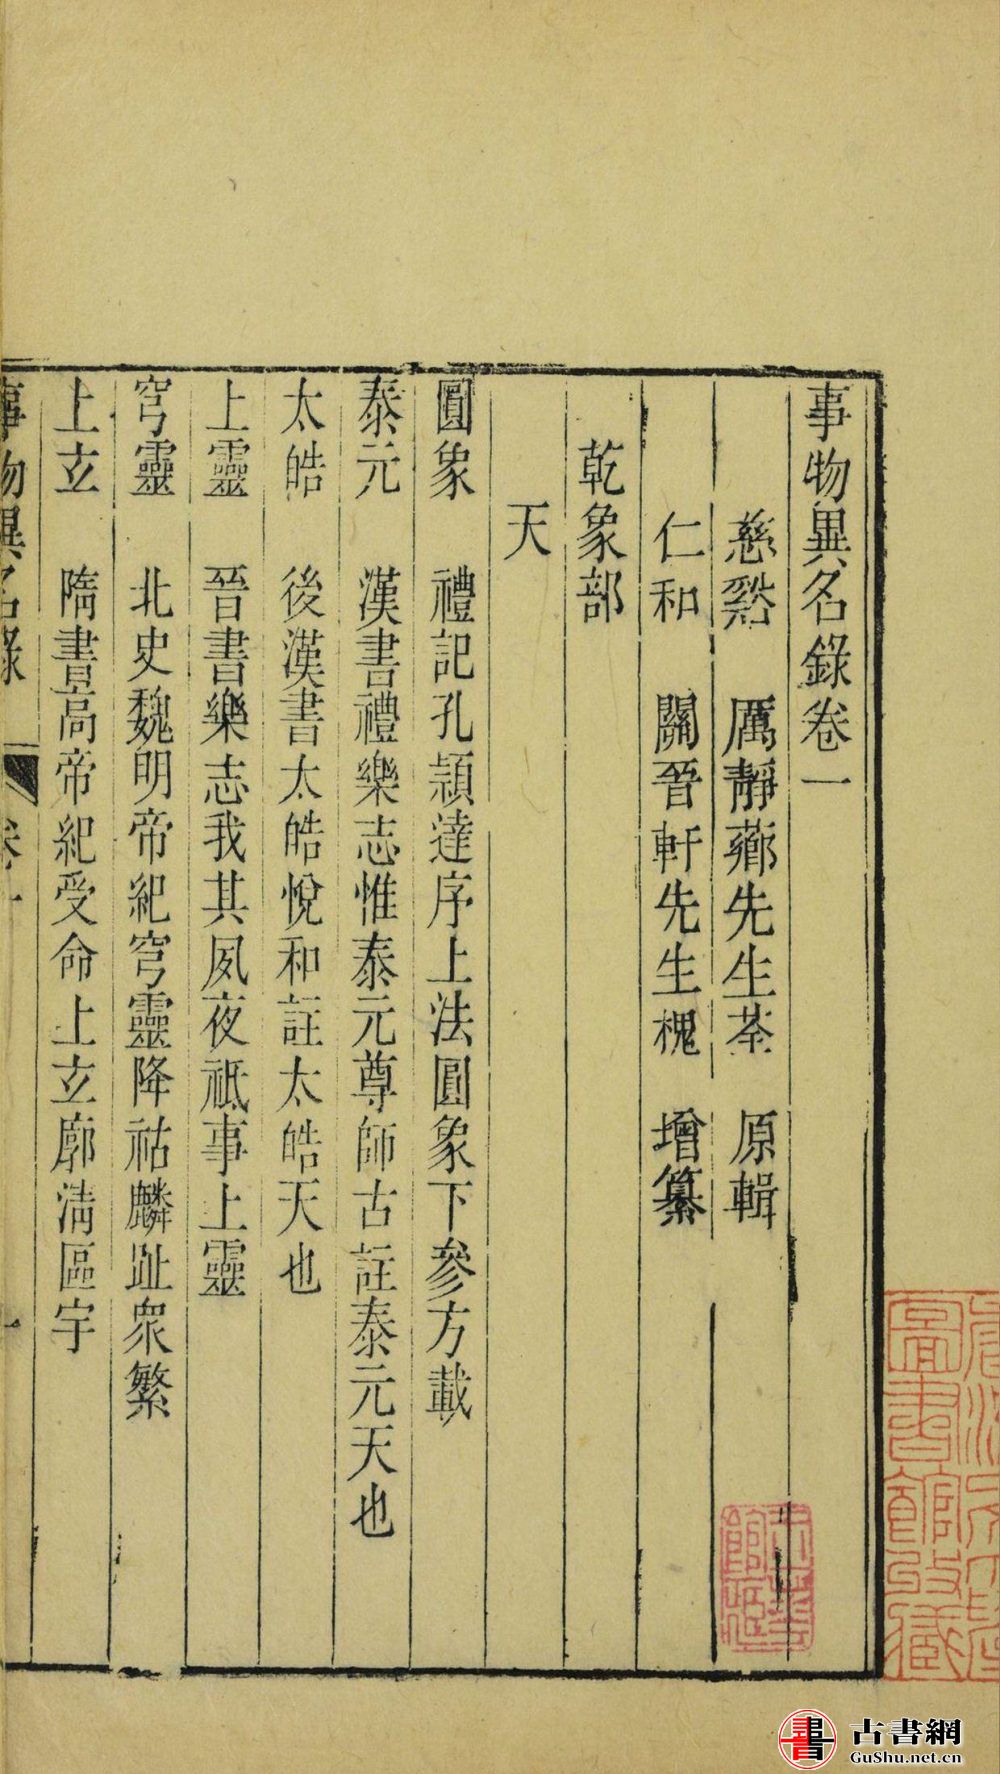 事物異名錄卷一
慈谿 厲靜薌先生荃 原輯
仁和 關晉軒先生槐 增纂
乾象部
天
圓象 禮記孔穎達序上法圓象下參方載
泰元 漢書禮樂志惟泰元尊師古註泰元天也
太皓 後漢書太皓悅和註太皓天也
上靈 晉書樂志我其夙夜祗事上靈
穹靈 北史魏明帝紀穹靈降祜麟趾衆繁
上玄 隋書高帝紀受命上玄廓清區宇
事物異名錄 卷一 一
圖書館攷藏
古書網
GuShu.net.cn